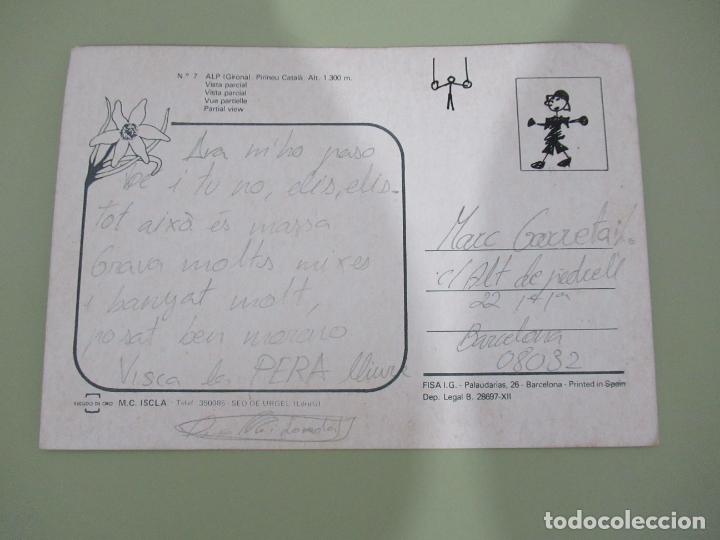 N.º 7 ALP (Girona). Pirineu Català. Alt. 1.300 m.
Vista parcial
Vista parcial
Vue partielle
Partial view
Ara m'ho paso
bé i tu no, elis, elis-
tot això és massa
Grava moltes mixes
i banyat molt,
posat ben moreno
Visca la PERA lliure
Marc Garreta
c/ Alt de pedrell
22, 4t, 1a
Barcelona
08032
FISA I.G. - Palaudarias, 26 - Barcelona - Printed in Spain
Dep. Legal B. 28697-XII
ESCUDO DE ORO M.C. ISCLA - Telef. 350085 - SEO DE URGEL (Lérida)
todocoleccion.net